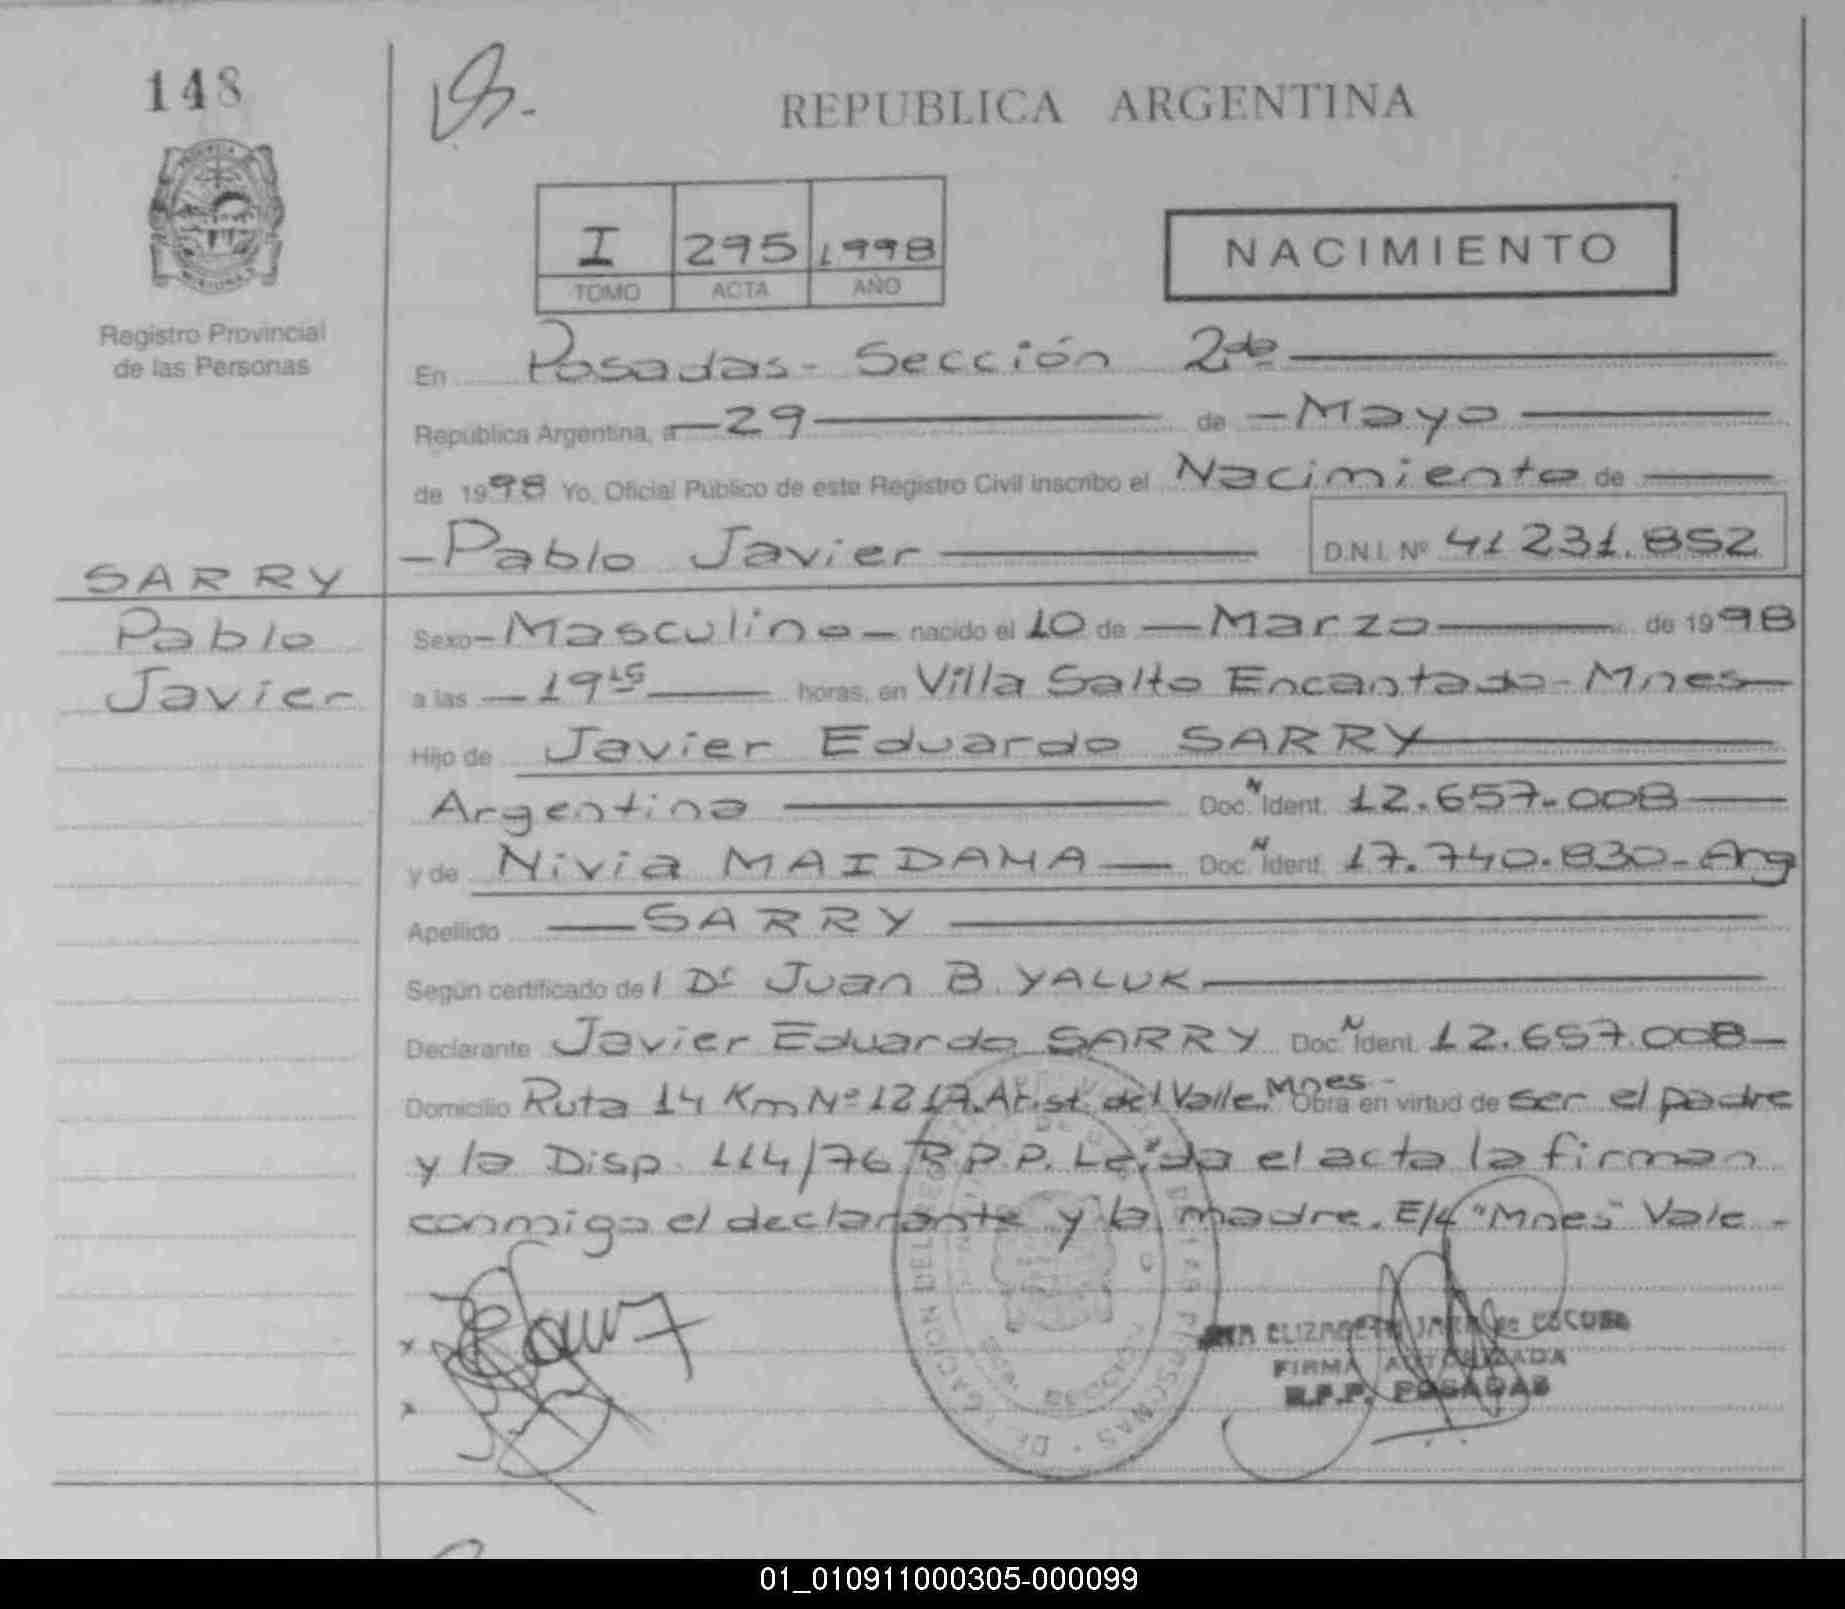 148
REPUBLICA ARGENTINA
I 295 1998
TOMO ACTA AÑO
NACIMIENTO
Registro Provincial
de las Personas
En Posadas - Sección 2da
República Argentina, a 29 de Mayo
de 1998 Yo, Oficial Público de este Registro Civil inscribo el Nacimiento de
Pablo Javier D.N.I. Nº 41 231.852
SARRY
Pablo
Javier
Sexo Masculino nacido el 10 de Marzo de 1998
a las 19 15 horas, en Villa Salto Encantado - Mnes
Hijo de Javier Eduardo SARRY
Argentino Doc. N Ident. 12.657.008
y de Nivia MAIDANA Doc. N Ident. 17.740.830 - Arg
Apellido SARRY
Según certificado del Dr Juan B. YALUK
Declarante Javier Eduardo SARRY Doc. N Ident. 12.657.008
Domicilio Ruta 14 Km Nº 1217. Arist. del Valle. Mnes - Obra en virtud de ser el padre
y la Disp. 114/76 R.P.P. Leída el acta la firman
conmigo el declarante y la madre. E/L "Mnes" Vale -
ELIZABETH
FIRMA AUTORIZADA
R.P.P. POSADAS
01_010911000305-000099